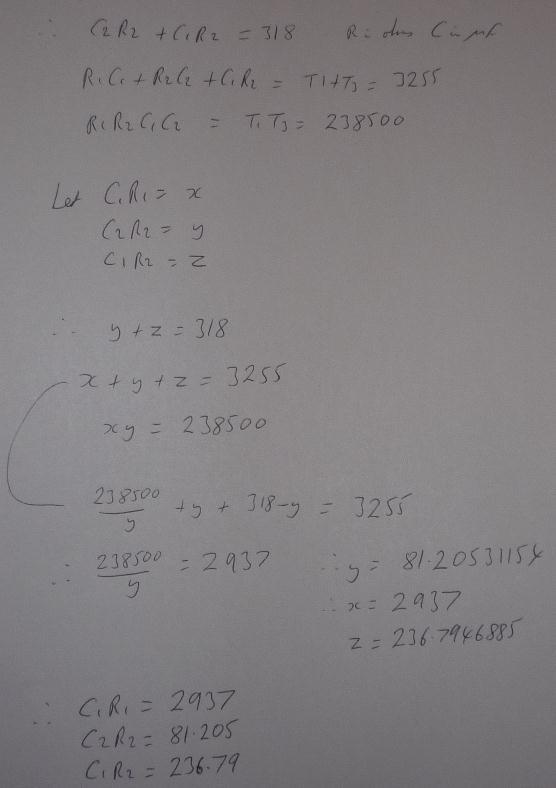 ∴ C2R2 + C1R2 = 318 R in ohms C in µF
R1C1 + R2C2 + C1R2 = T1+T3 = 3255
R1R2C1C2 = T1T3 = 238500
Let C1R1 = x
C2R2 = y
C1R2 = z
∴ y + z = 318
x + y + z = 3255
xy = 238500
238500/y + y + 318-y = 3255
∴ 238500/y = 2937 ∴ y = 81.20531154
∴ x = 2937
z = 236.7946885
∴ C1R1 = 2937
C2R2 = 81.205
C1R2 = 236.79